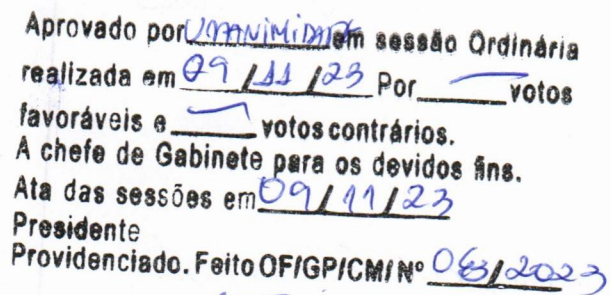 Aprovado por UNANIMIDADE em sessão Ordinária
realizada em 09/11/23 Por votos
favoráveis e votos contrários.
A chefe de Gabinete para os devidos fins.
Ata das sessões em 09/11/23
Presidente
Providenciado. Feito OF/GP/CM/Nº /2023